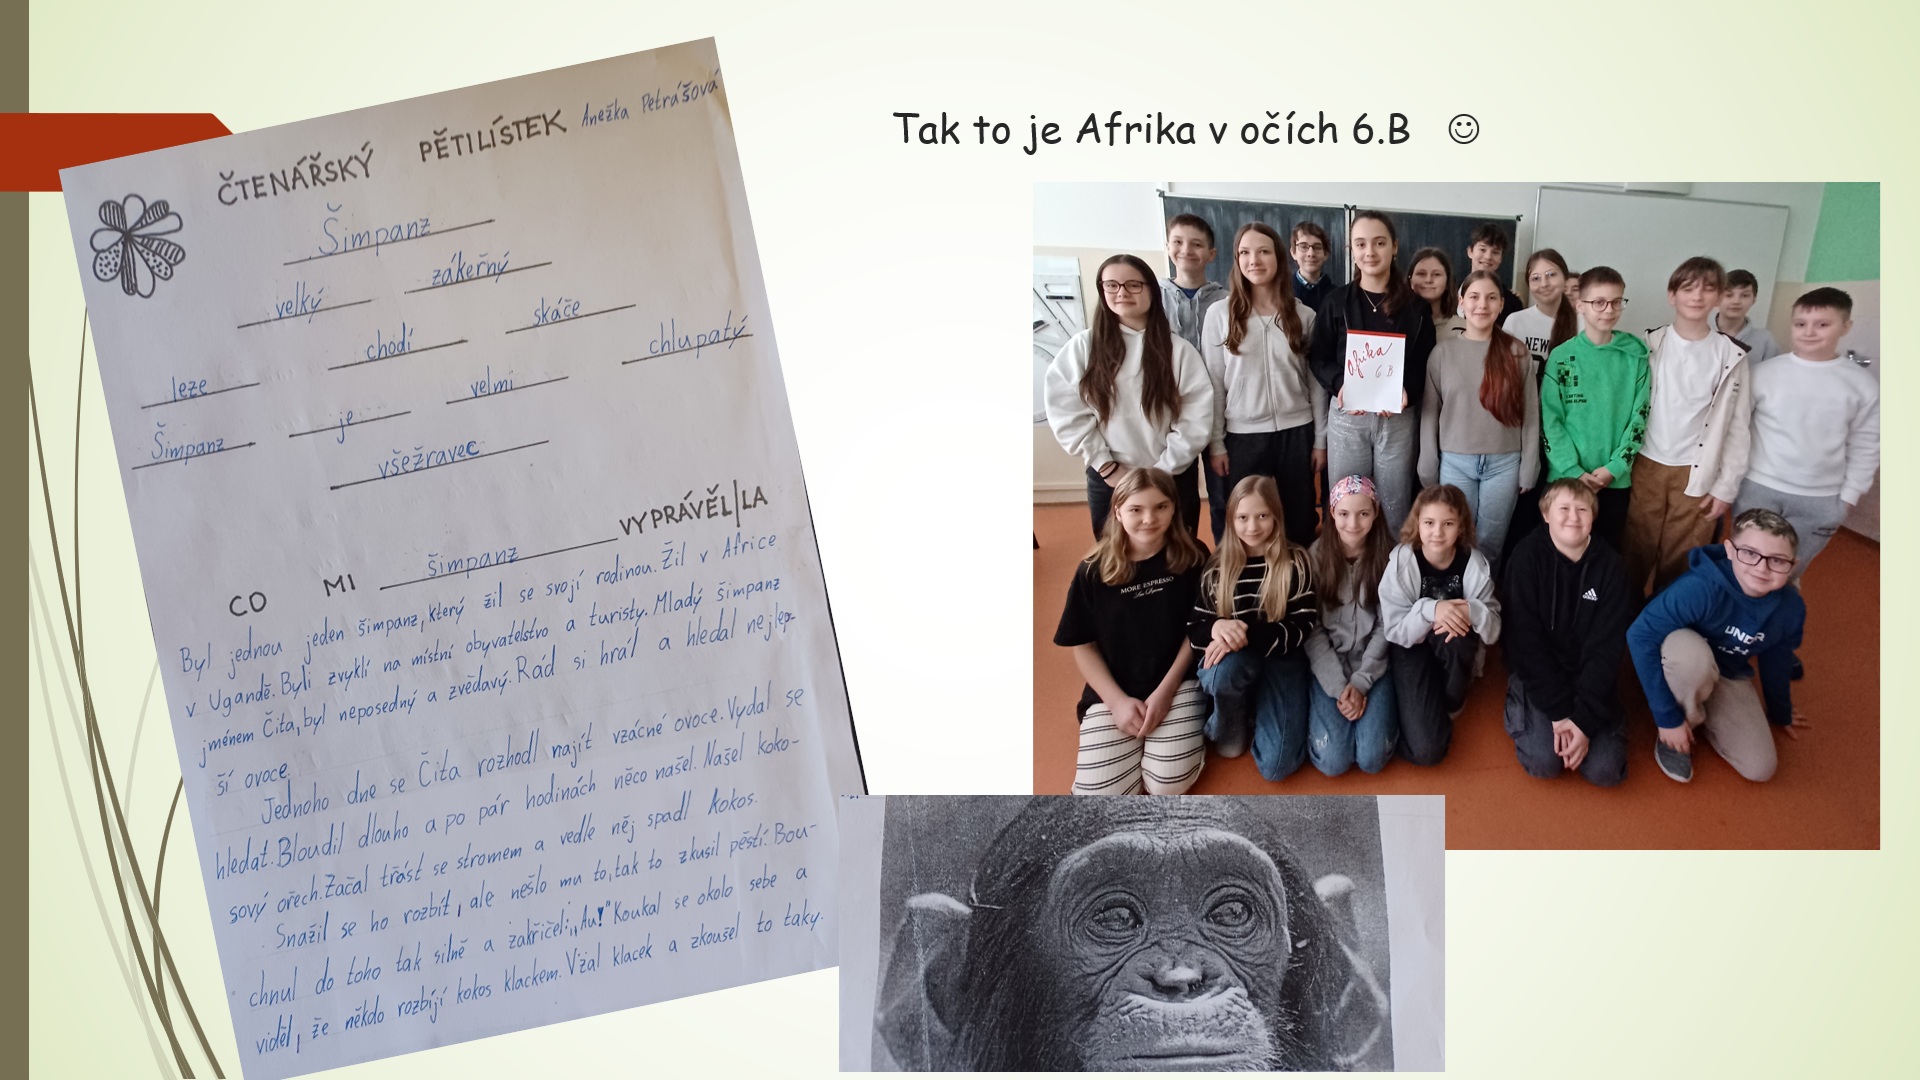 Tak to je Afrika v očích 6.B ☺
ČTENÁŘSKÝ PĚTILÍSTEK Anežka Petrášová
Šimpanz
velký zákeřný
leze chodí skáče
Šimpanz je velmi chlupatý
všežravec
CO MI šimpanz VYPRÁVĚL/LA
Byl jednou jeden šimpanz, který žil se svojí rodinou. Žil v Africe
v Ugandě. Byli zvyklí na místní obyvatelstvo a turisty. Mladý šimpanz
jménem Čita, byl neposedný a zvědavý. Rád si hrál a hledal nejlep-
ší ovoce.
Jednoho dne se Čita rozhodl najít vzácné ovoce. Vydal se
hledat. Bloudil dlouho a po pár hodinách něco našel. Našel koko-
sový ořech. Začal třást se stromem a vedle něj spadl kokos.
Snažil se ho rozbít, ale nešlo mu to, tak to zkusil pěstí. Bou-
chnul do toho tak silně a zakřičel: „Au!" Koukal se okolo sebe a
viděl, že někdo rozbíjí kokos klackem. Vzal klacek a zkoušel to taky.
Afrika
6.B
NEW
MORE ESPRESSO
adidas
UNDER